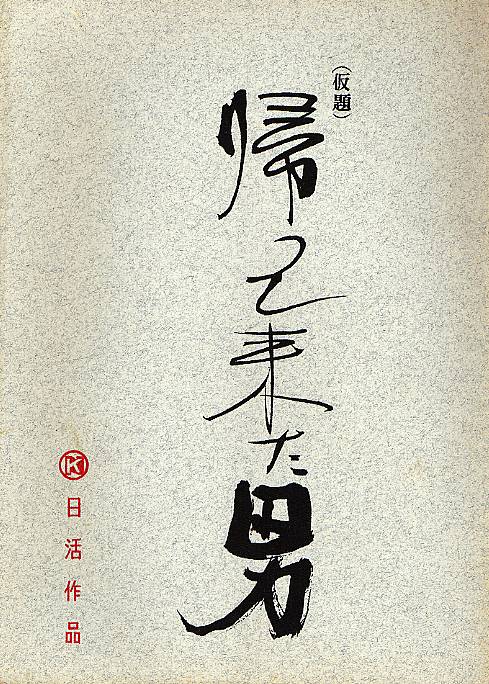 (仮題)
帰って来た男
日活作品